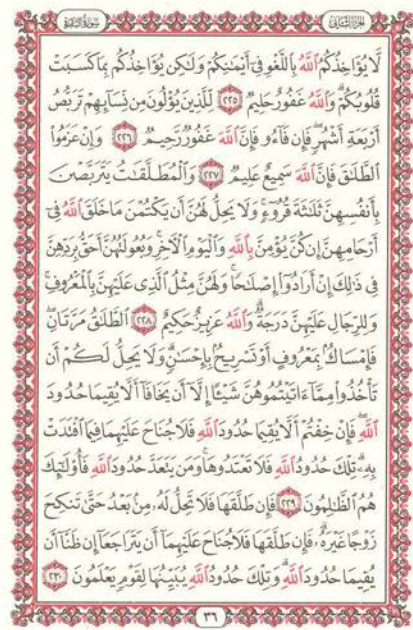 الجزء الثاني
سورة البقرة
لَّا يُؤَاخِذُكُمُ ٱللَّهُ بِٱللَّغۡوِ فِىٓ أَيۡمَٰنِكُمۡ وَلَٰكِن يُؤَاخِذُكُم بِمَا كَسَبَتۡ
قُلُوبُكُمۡۗ وَٱللَّهُ غَفُورٌ حَلِيمٌ ٢٢٥ لِّلَّذِينَ يُؤۡلُونَ مِن نِّسَآئِهِمۡ تَرَبُّصُ
أَرۡبَعَةِ أَشۡهُرٖۖ فَإِن فَآءُو فَإِنَّ ٱللَّهَ غَفُورٌ رَّحِيمٌ ٢٢٦ وَإِنۡ عَزَمُوا۟
ٱلطَّلَٰقَ فَإِنَّ ٱللَّهَ سَمِيعٌ عَلِيمٌ ٢٢٧ وَٱلۡمُطَلَّقَٰتُ يَتَرَبَّصۡنَ
بِأَنفُسِهِنَّ ثَلَٰثَةَ قُرُوٓءٖۚ وَلَا يَحِلُّ لَهُنَّ أَن يَكۡتُمۡنَ مَا خَلَقَ ٱللَّهُ فِىٓ
أَرۡحَامِهِنَّ إِن كُنَّ يُؤۡمِنَّ بِٱللَّهِ وَٱلۡيَوۡمِ ٱلۡأٓخِرِۚ وَبُعُولَتُهُنَّ أَحَقُّ بِرَدِّهِنَّ
فِى ذَٰلِكَ إِنۡ أَرَادُوٓا۟ إِصۡلَٰحٗاۚ وَلَهُنَّ مِثۡلُ ٱلَّذِى عَلَيۡهِنَّ بِٱلۡمَعۡرُوفِۚ
وَلِلرِّجَالِ عَلَيۡهِنَّ دَرَجَةٞۗ وَٱللَّهُ عَزِيزٌ حَكِيمٌ ٢٢٨ ٱلطَّلَٰقُ مَرَّتَانِۖ
فَإِمۡسَاكُۢ بِمَعۡرُوفٍ أَوۡ تَسۡرِيحُۢ بِإِحۡسَٰنٖۗ وَلَا يَحِلُّ لَكُمۡ أَن
تَأۡخُذُوا۟ مِمَّآ ءَاتَيۡتُمُوهُنَّ شَيۡـًٔا إِلَّآ أَن يَخَافَآ أَلَّا يُقِيمَا حُدُودَ
ٱللَّهِۖ فَإِنۡ خِفۡتُمۡ أَلَّا يُقِيمَا حُدُودَ ٱللَّهِ فَلَا جُنَاحَ عَلَيۡهِمَا فِيمَا ٱفۡتَدَتۡ
بِهِۦۗ تِلۡكَ حُدُودُ ٱللَّهِ فَلَا تَعۡتَدُوهَاۚ وَمَن يَتَعَدَّ حُدُودَ ٱللَّهِ فَأُو۟لَٰٓئِكَ
هُمُ ٱلظَّٰلِمُونَ ٢٢٩ فَإِن طَلَّقَهَا فَلَا تَحِلُّ لَهُۥ مِنۢ بَعۡدُ حَتَّىٰ تَنكِحَ
زَوۡجًا غَيۡرَهُۥۗ فَإِن طَلَّقَهَا فَلَا جُنَاحَ عَلَيۡهِمَآ أَن يَتَرَاجَعَآ إِن ظَنَّآ أَن
يُقِيمَا حُدُودَ ٱللَّهِۗ وَتِلۡكَ حُدُودُ ٱللَّهِ يُبَيِّنُهَا لِقَوۡمٖ يَعۡلَمُونَ ٢٣٠
٣٦